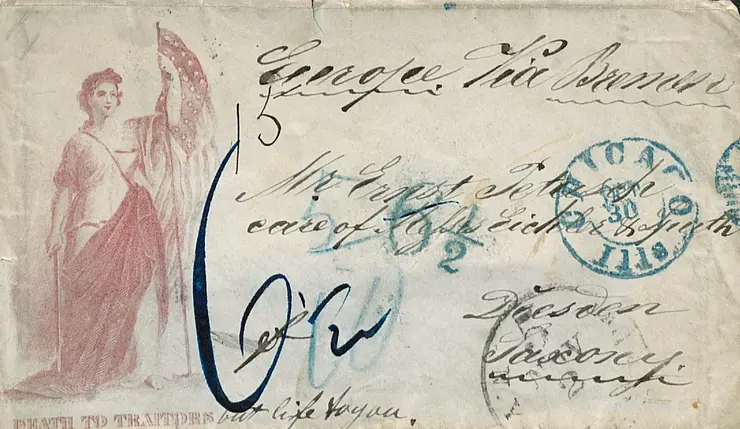 Europe Via Bremen
15
Mr Ernst Petersch
care of
CHICAGO
30
Ills
5 1/2
Dresden
Saxony
DEATH TO TRAITORS but life to you.